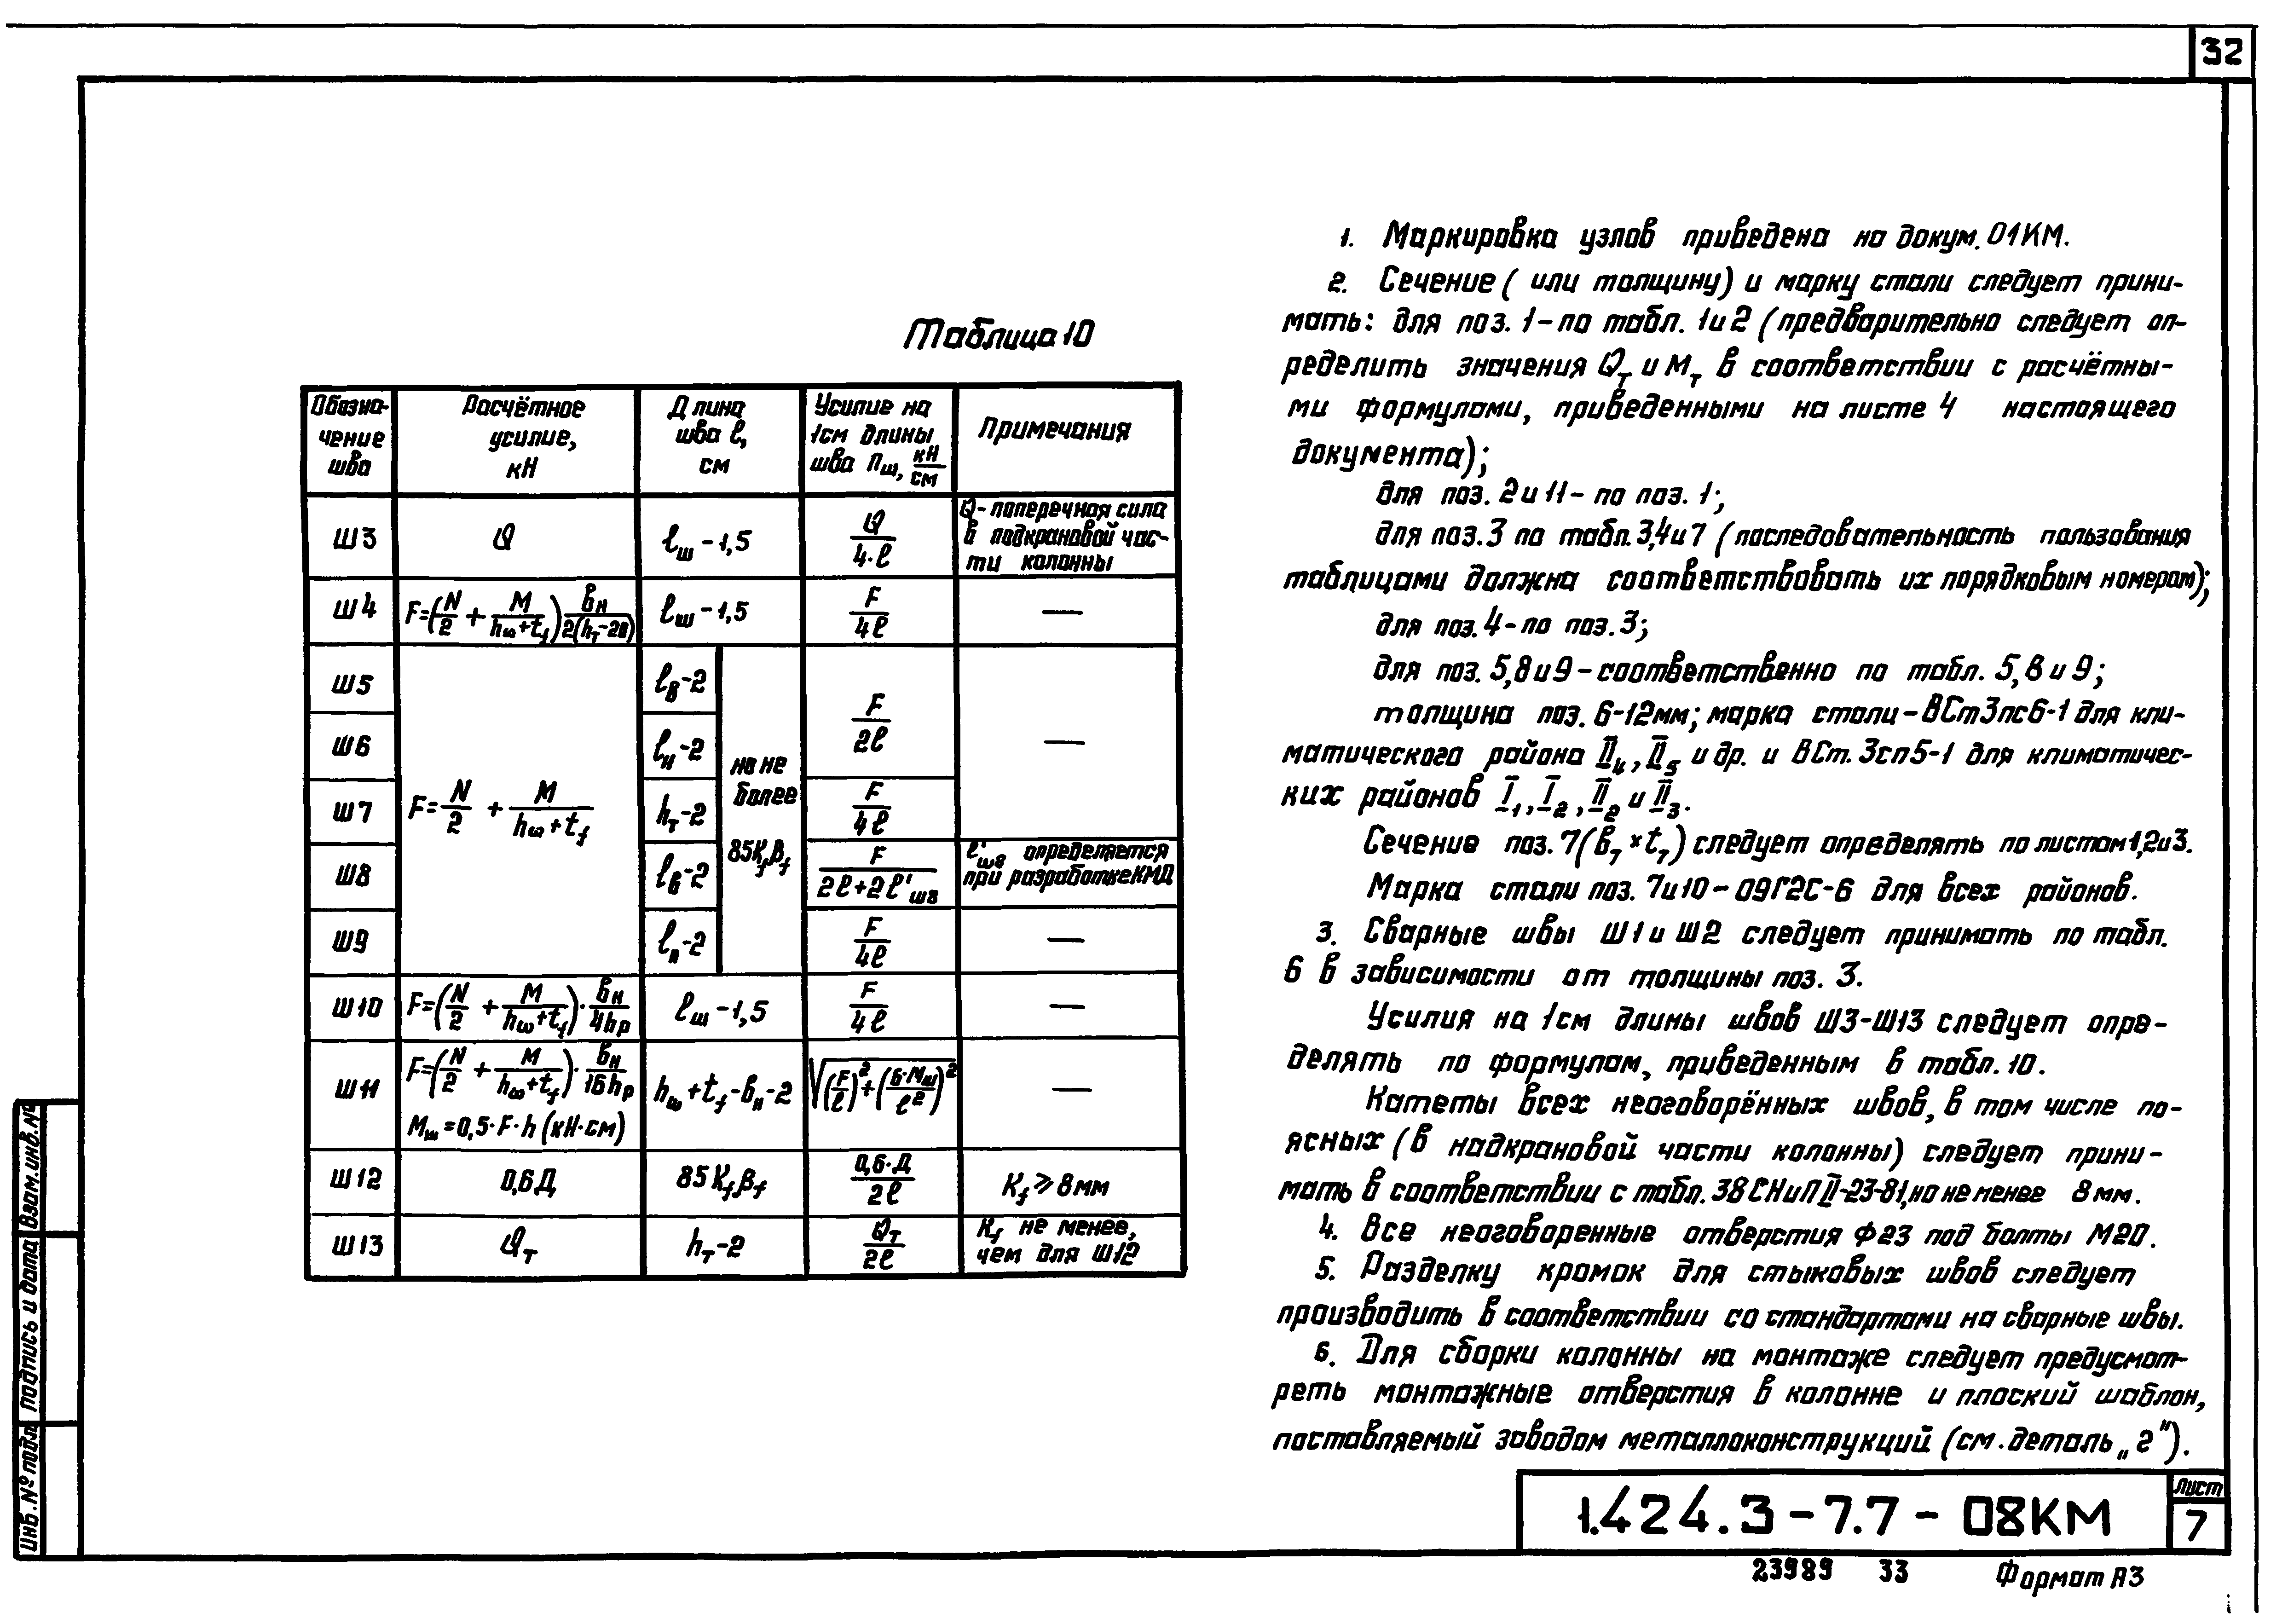 32
Таблица 10
Обозна-
чение
шва
Расчётное
усилие,
кН
Длина
шва ℓ,
см
Усилие на
1см длины
шва nш, кН/см
Примечания
Ш3
Q
ℓш - 1,5
Q/(4·ℓ)
Q - поперечная сила
в подкрановой час-
ти колонны
Ш4
F=(N/2 + M/(hω+tf)) вн/(2(hт-20))
ℓш - 1,5
F/4ℓ
—
Ш5
ℓв-2
F/2ℓ
Ш6
ℓн-2
—
но не
более
85Kfβf
Ш7
F=N/2 + M/(hω+tf)
hт-2
F/4ℓ
Ш8
ℓв-2
F/(2ℓ+2ℓ'ш8)
ℓ'ш8 определяется
при разработке КМД
Ш9
ℓн-2
F/4ℓ
—
Ш10
F=(N/2 + M/(hω+tf))·вн/4hр
ℓш - 1,5
F/4ℓ
—
Ш11
F=(N/2 + M/(hω+tf))·вн/16hр
Mш=0,5·F·h (кН·см)
hω+tf-вн-2
√((F/ℓ)²+(6·Mш/ℓ²)²)
—
Ш12
0,6Д
85Kfβf
0,6·Д/2ℓ
Kf ⩾ 8мм
Ш13
Qт
hт-2
Qт/2ℓ
Kf не менее,
чем для Ш12
1. Маркировка узлов приведена на докум. 01КМ.
2. Сечение ( или толщину) и марку стали следует прини-
мать: для поз. 1-по табл. 1 и 2 (предварительно следует оп-
ределить значения Qт и Mт в соответствии с расчётны-
ми формулами, приведенными на листе 4 настоящего
документа);
для поз. 2 и 11 - по поз. 1;
для поз. 3 по табл. 3,4 и 7 (последовательность пользования
таблицами должна соответствовать их порядковым номерам);
для поз. 4-по поз. 3;
для поз. 5,8 и 9-соответственно по табл. 5,8 и 9;
толщина поз. 6-12мм; марка стали-ВСт3пс6-1 для кли-
матического района II4, II5 и др. и ВСт.3сп5-1 для климатичес-
ких районов I1, I2, II2 и II3.
Сечение поз. 7(в7×t7) следует определять по листам 1,2 и 3.
Марка стали поз. 7 и 10-09Г2С-6 для всех районов.
3. Сварные швы Ш1 и Ш2 следует принимать по табл.
6 в зависимости от толщины поз. 3.
Усилия на 1см длины швов Ш3-Ш13 следует опре-
делять по формулам, приведенным в табл. 10.
Катеты всех неоговорённых швов, в том числе по-
ясных (в надкрановой части колонны) следует прини-
мать в соответствии с табл. 38 СНиП II-23-81, но не менее 8мм.
4. Все неоговоренные отверстия Ф23 под болты М20.
5. Разделку кромок для стыковых швов следует
производить в соответствии со стандартами на сварные швы.
6. Для сборки колонны на монтаже следует предусмот-
реть монтажные отверстия в колонне и плоский шаблон,
поставляемый заводом металлоконструкций (см. деталь „г").
Инв.№ подл.
Подпись и дата
Взам.инв.№
1.424.3-7.7-08КМ
Лист
7
23989 33
Формат А3